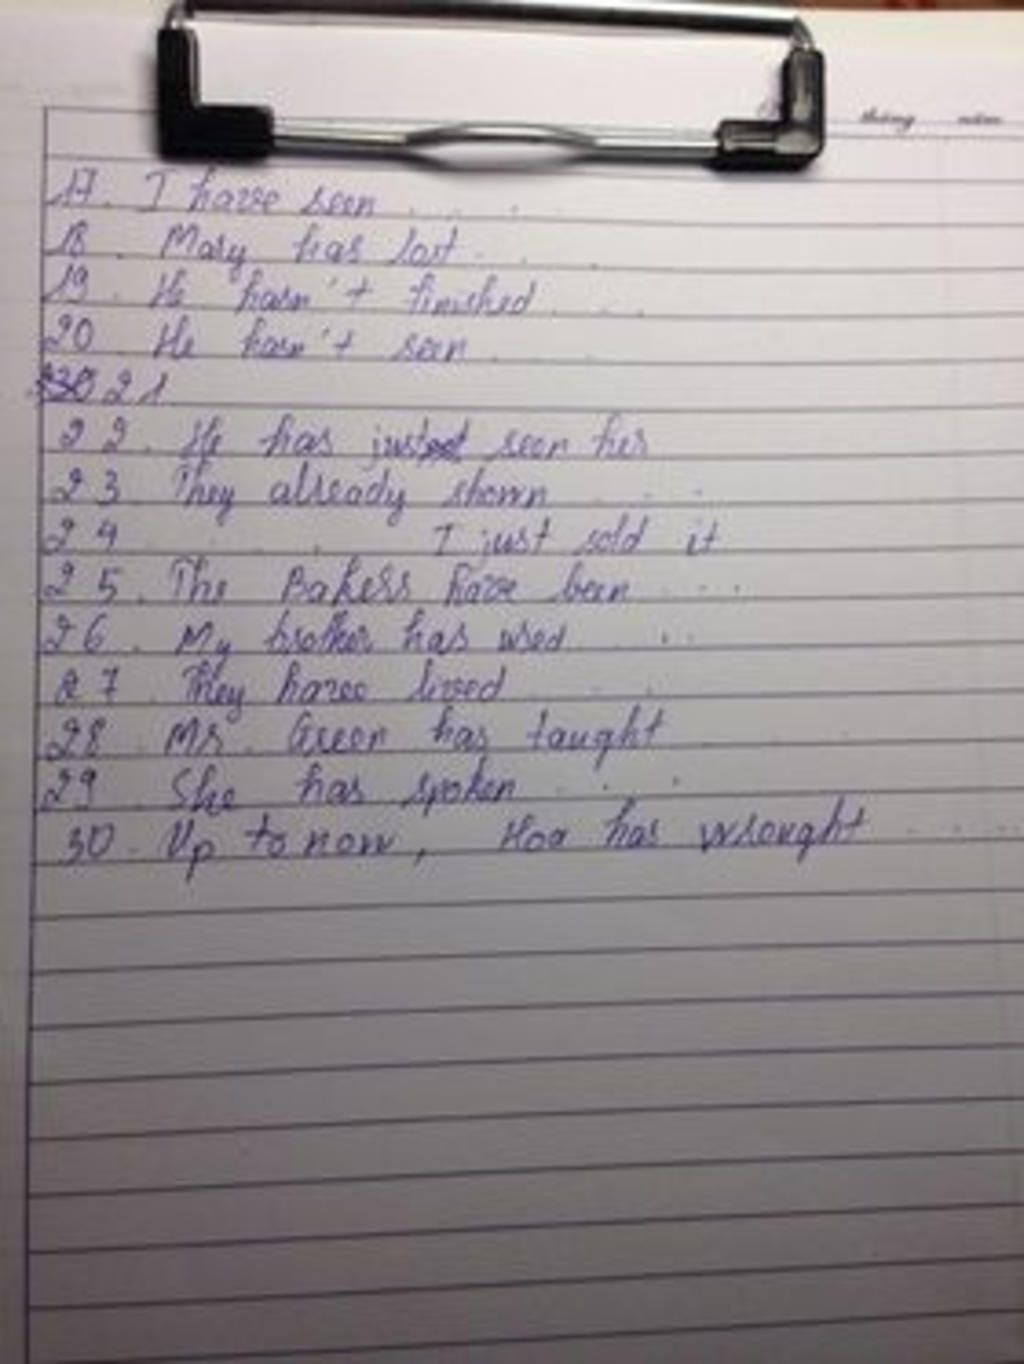 tháng năm
17. I have seen . . .
18. Mary has lost . . .
19. He hasn't finished . . .
20. He hasn't seen . . .
21
22. He has just seen her
23. They already shown . . .
24 . . . I just sold it
25. The Bakers have been . . .
26. My brother has used . . .
27. They have lived . . .
28. Mr. Green has taught . . .
29. She has spoken . . .
30. Up to now, Hoa has wrought . . .